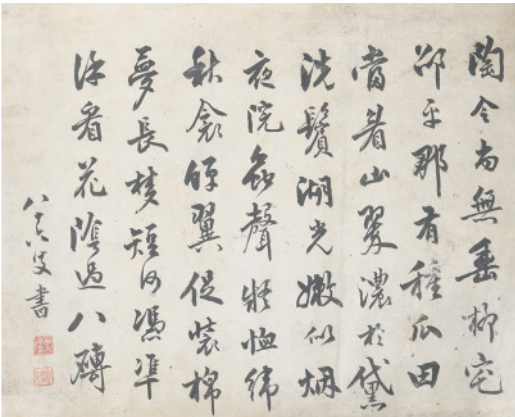 陶令尚無垂柳宅
邵平那有種瓜田
當着山翠濃於黛
洗鬢湖光嫩似烟
夜院聲恤緯
秋衾翼促裝棉
夢長夢短何憑準
看花陰過八磚
叟書